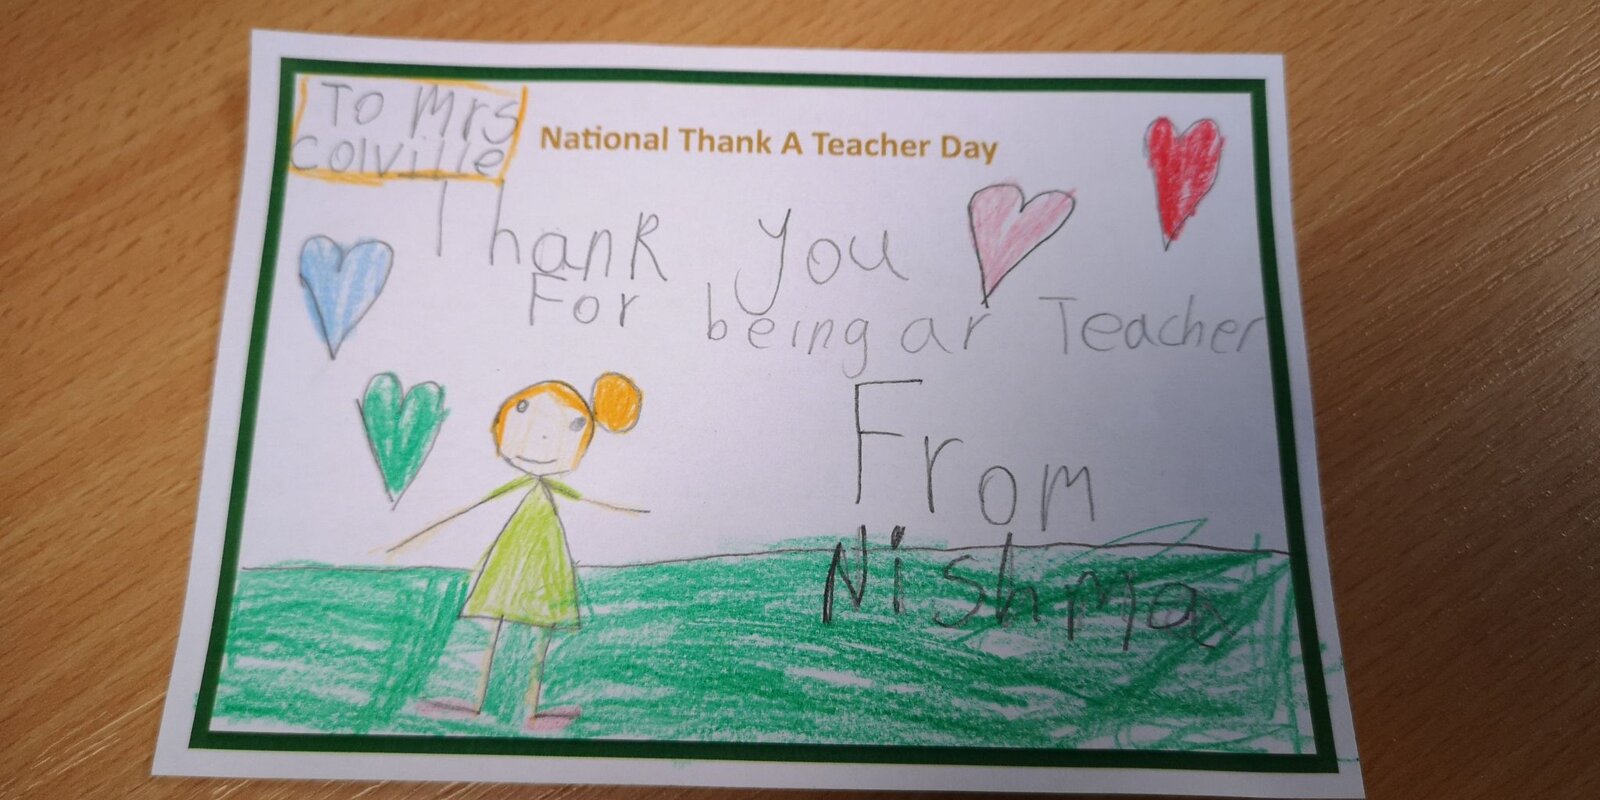 To Mrs
Colville
National Thank A Teacher Day
Thank you
For being ar Teacher
From
Nishma